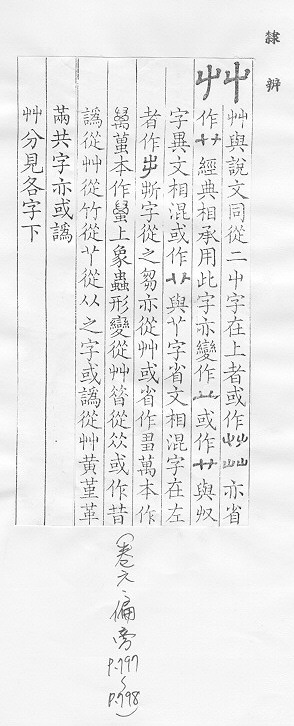 隸辨
艸
艸與說文同從二屮字在上者或作亦省
作艹經典相承用此字亦變作䒑或作艹與収
字異文相混或作與丫字省文相混字在左
者作字從之芻亦從艸或省作萬本作
萬本作上象蟲形變從艸從或作昔
譌從艸從竹從從从之字或譌從艸黃堇革
共字亦或譌
艸分見各字下
(卷六、偏旁
P.797
~
P.798)